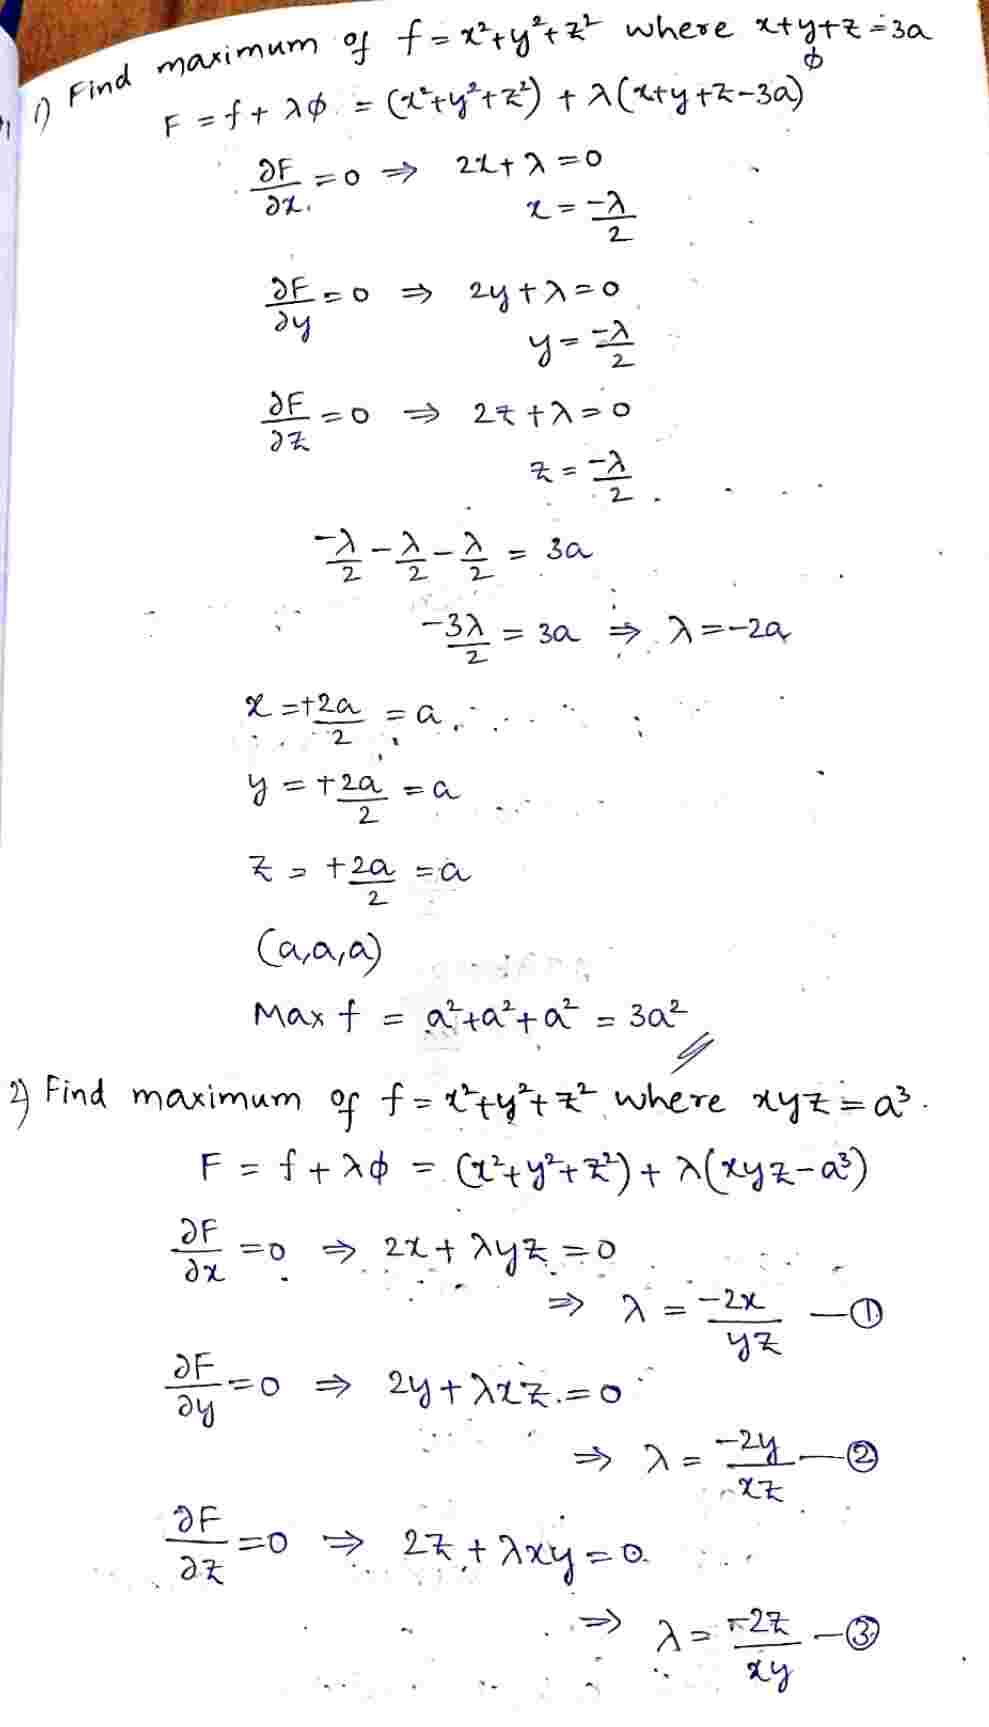 1) Find maximum of f = x²+y²+z² where x+y+z=3a
ϕ
F = f + λϕ. = (x²+y²+z²) + λ(x+y+z-3a)
∂F/∂x. = 0 ⇒ 2x+λ=0
x = -λ/2
∂F/∂y = 0 ⇒ 2y+λ=0
y = -λ/2
∂F/∂z = 0 ⇒ 2z+λ=0
z = -λ/2.
-λ/2 - λ/2 - λ/2 = 3a
-3λ/2 = 3a ⇒ λ=-2a
x = +2a/2 = a
y = +2a/2 = a
z = +2a/2 = a
(a,a,a)
Max f = a²+a²+a² = 3a²
2) Find maximum of f = x²+y²+z² where xyz = a³.
F = f + λϕ = (x²+y²+z²) + λ(xyz-a³)
∂F/∂x = 0 ⇒ 2x + λyz = 0
⇒ λ = -2x/yz —①
∂F/∂y = 0 ⇒ 2y + λxz = 0
⇒ λ = -2y/xz —②
∂F/∂z = 0 ⇒ 2z + λxy = 0.
⇒ λ = -2z/xy —③